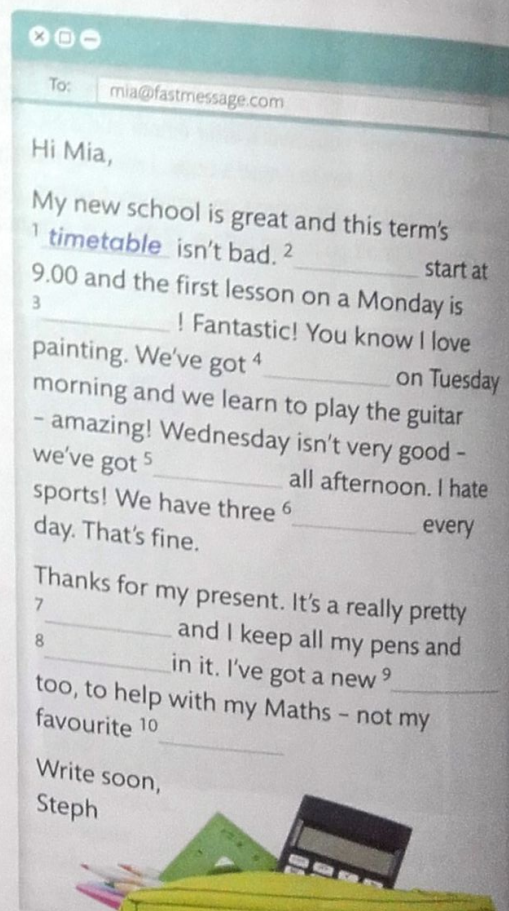 To: mia@fastmessage.com
Hi Mia,
My new school is great and this term's
1 timetable isn't bad. 2 ____________ start at
9.00 and the first lesson on a Monday is
3 ____________ ! Fantastic! You know I love
painting. We've got 4 ____________ on Tuesday
morning and we learn to play the guitar
– amazing! Wednesday isn't very good –
we've got 5 ____________ all afternoon. I hate
sports! We have three 6 ____________ every
day. That's fine.
Thanks for my present. It's a really pretty
7 ____________ and I keep all my pens and
8 ____________ in it. I've got a new 9 ____________
too, to help with my Maths – not my
favourite 10 ____________
Write soon,
Steph